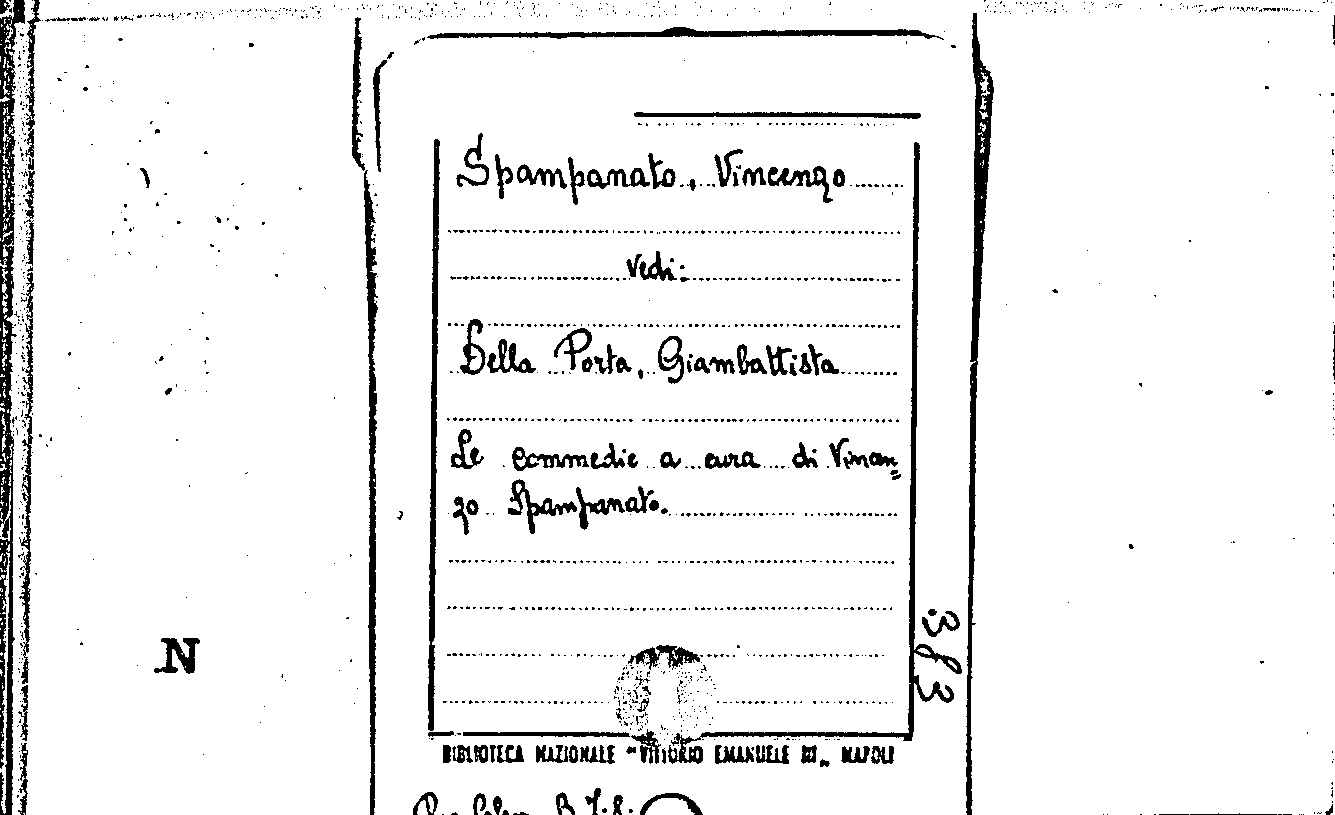 Spampanato, Vincenzo
Vedi:
Della Porta, Giambattista
Le commedie a cura di Vincen=
zo Spampanato.
383
N
BIBLIOTECA NAZIONALE "VITTORIO EMANUELE III„ NAPOLI